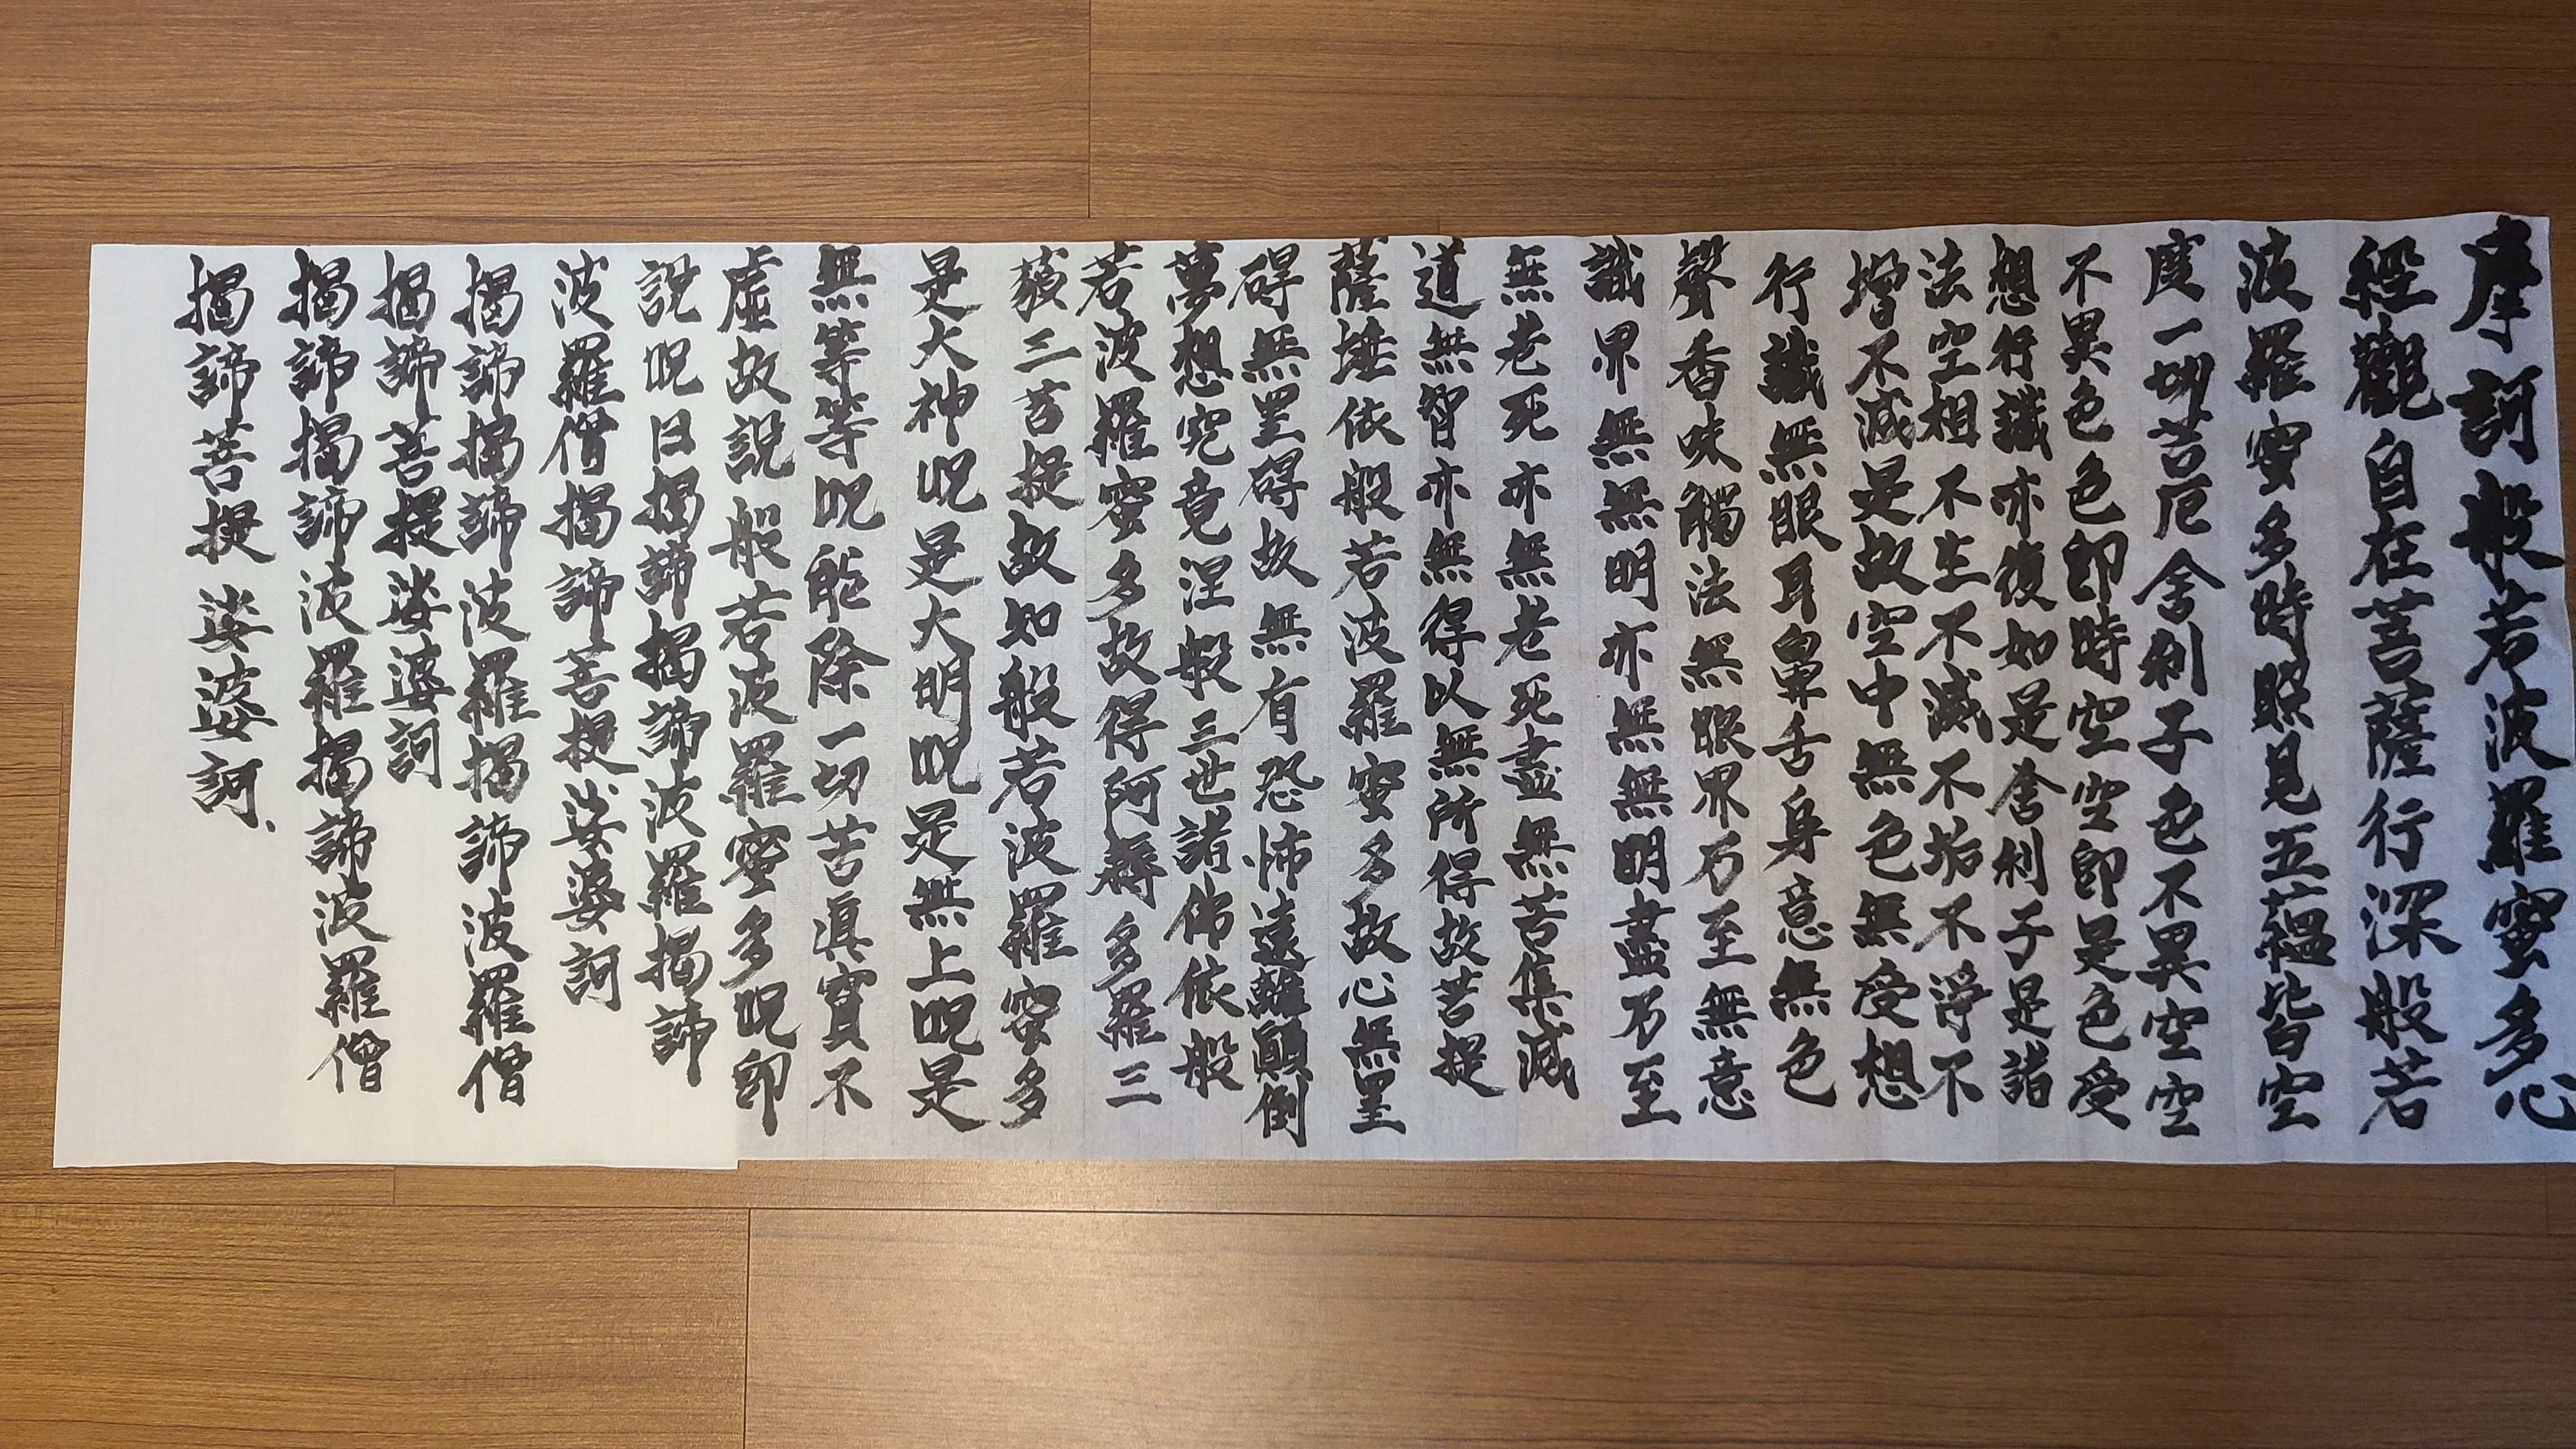 摩訶般若波羅蜜多心
經觀自在菩薩行深般若
波羅蜜多時照見五蘊皆空
度一切苦厄舍利子色不異空空
不異色色即時空空即是色受
想行識亦復如是舍利子是諸
法空相不生不滅不垢不淨不
增不減是故空中無色無受想
行識無眼耳鼻舌身意無色
聲香味觸法無眼界乃至無意
識界無無明亦無無明盡乃至
無老死亦無老死盡無苦集滅
道無智亦無得以無所得故菩提
薩埵依般若波羅蜜多故心無罣
碍無罣碍故無有恐怖遠離顛倒
夢想究竟涅般三世諸佛依般
若波羅蜜多故得阿耨多羅三
藐三菩提故如般若波羅蜜多
是大神呪是大明呪是無上呪是
無等等呪能除一切苦眞實不
虛故說般若波羅蜜多呪即
說呪曰揭諦揭諦波羅揭諦
波羅僧揭諦菩提娑婆訶
揭諦揭諦波羅揭諦波羅僧
揭諦菩提娑婆訶
揭諦揭諦波羅揭諦波羅僧
揭諦菩提娑婆訶、